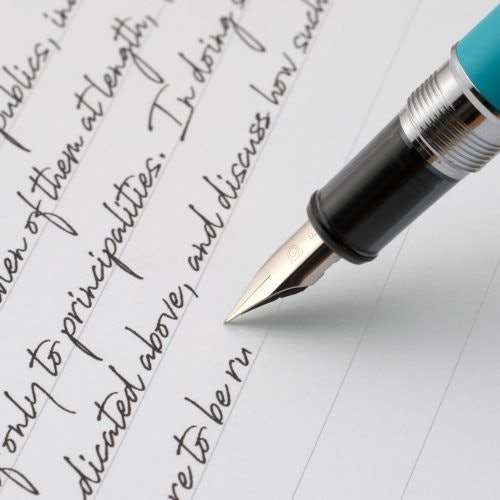 publics,
of them at length,
only to principalities. In doing
dicated above, and discuss how such
re to be ru